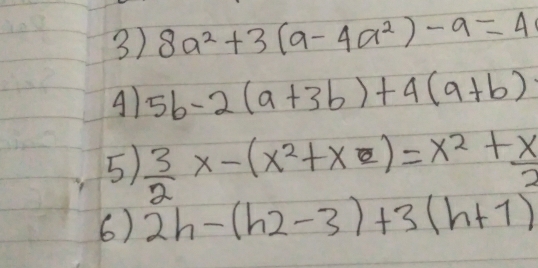 3) 8a² + 3(a - 4a²) - a = 4
4) 5b - 2(a + 3b) + 4(a + b)
5) 3/2 x - (x² + x) = x² + x/2
6) 2h - (h2 - 3) + 3(h + 1)